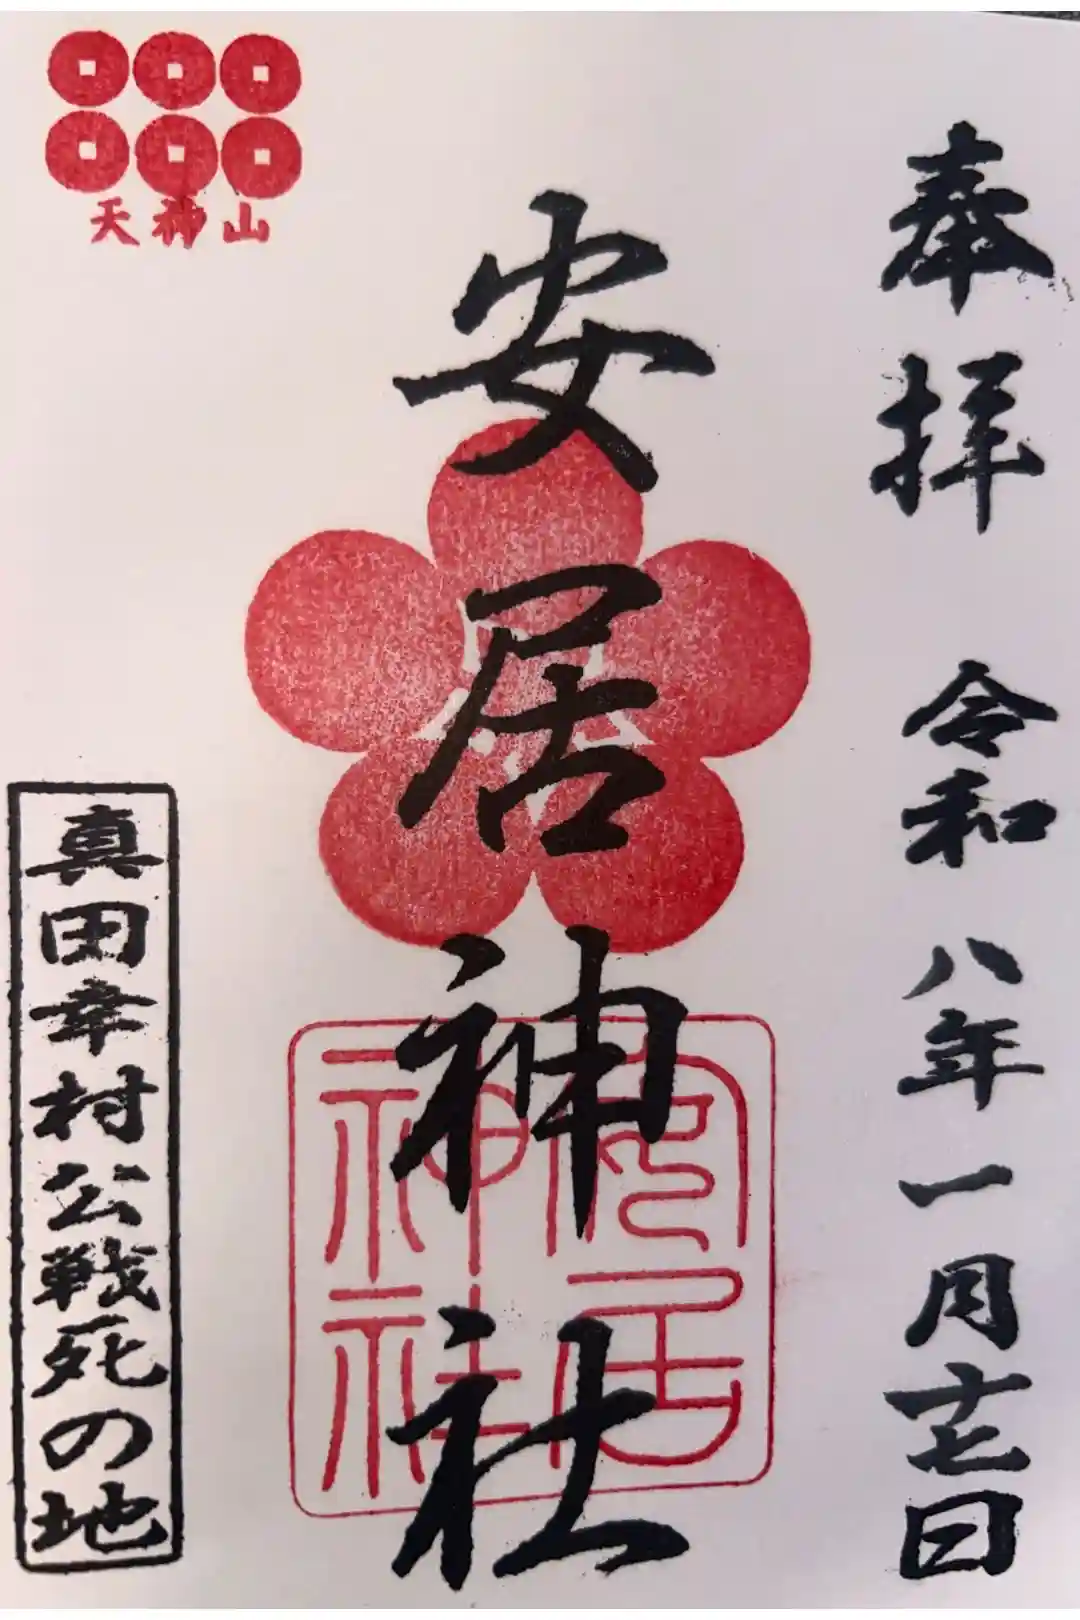 奉拝 令和八年一月十七日
安居神社
安居
神社
天神山
真田幸村公戦死の地